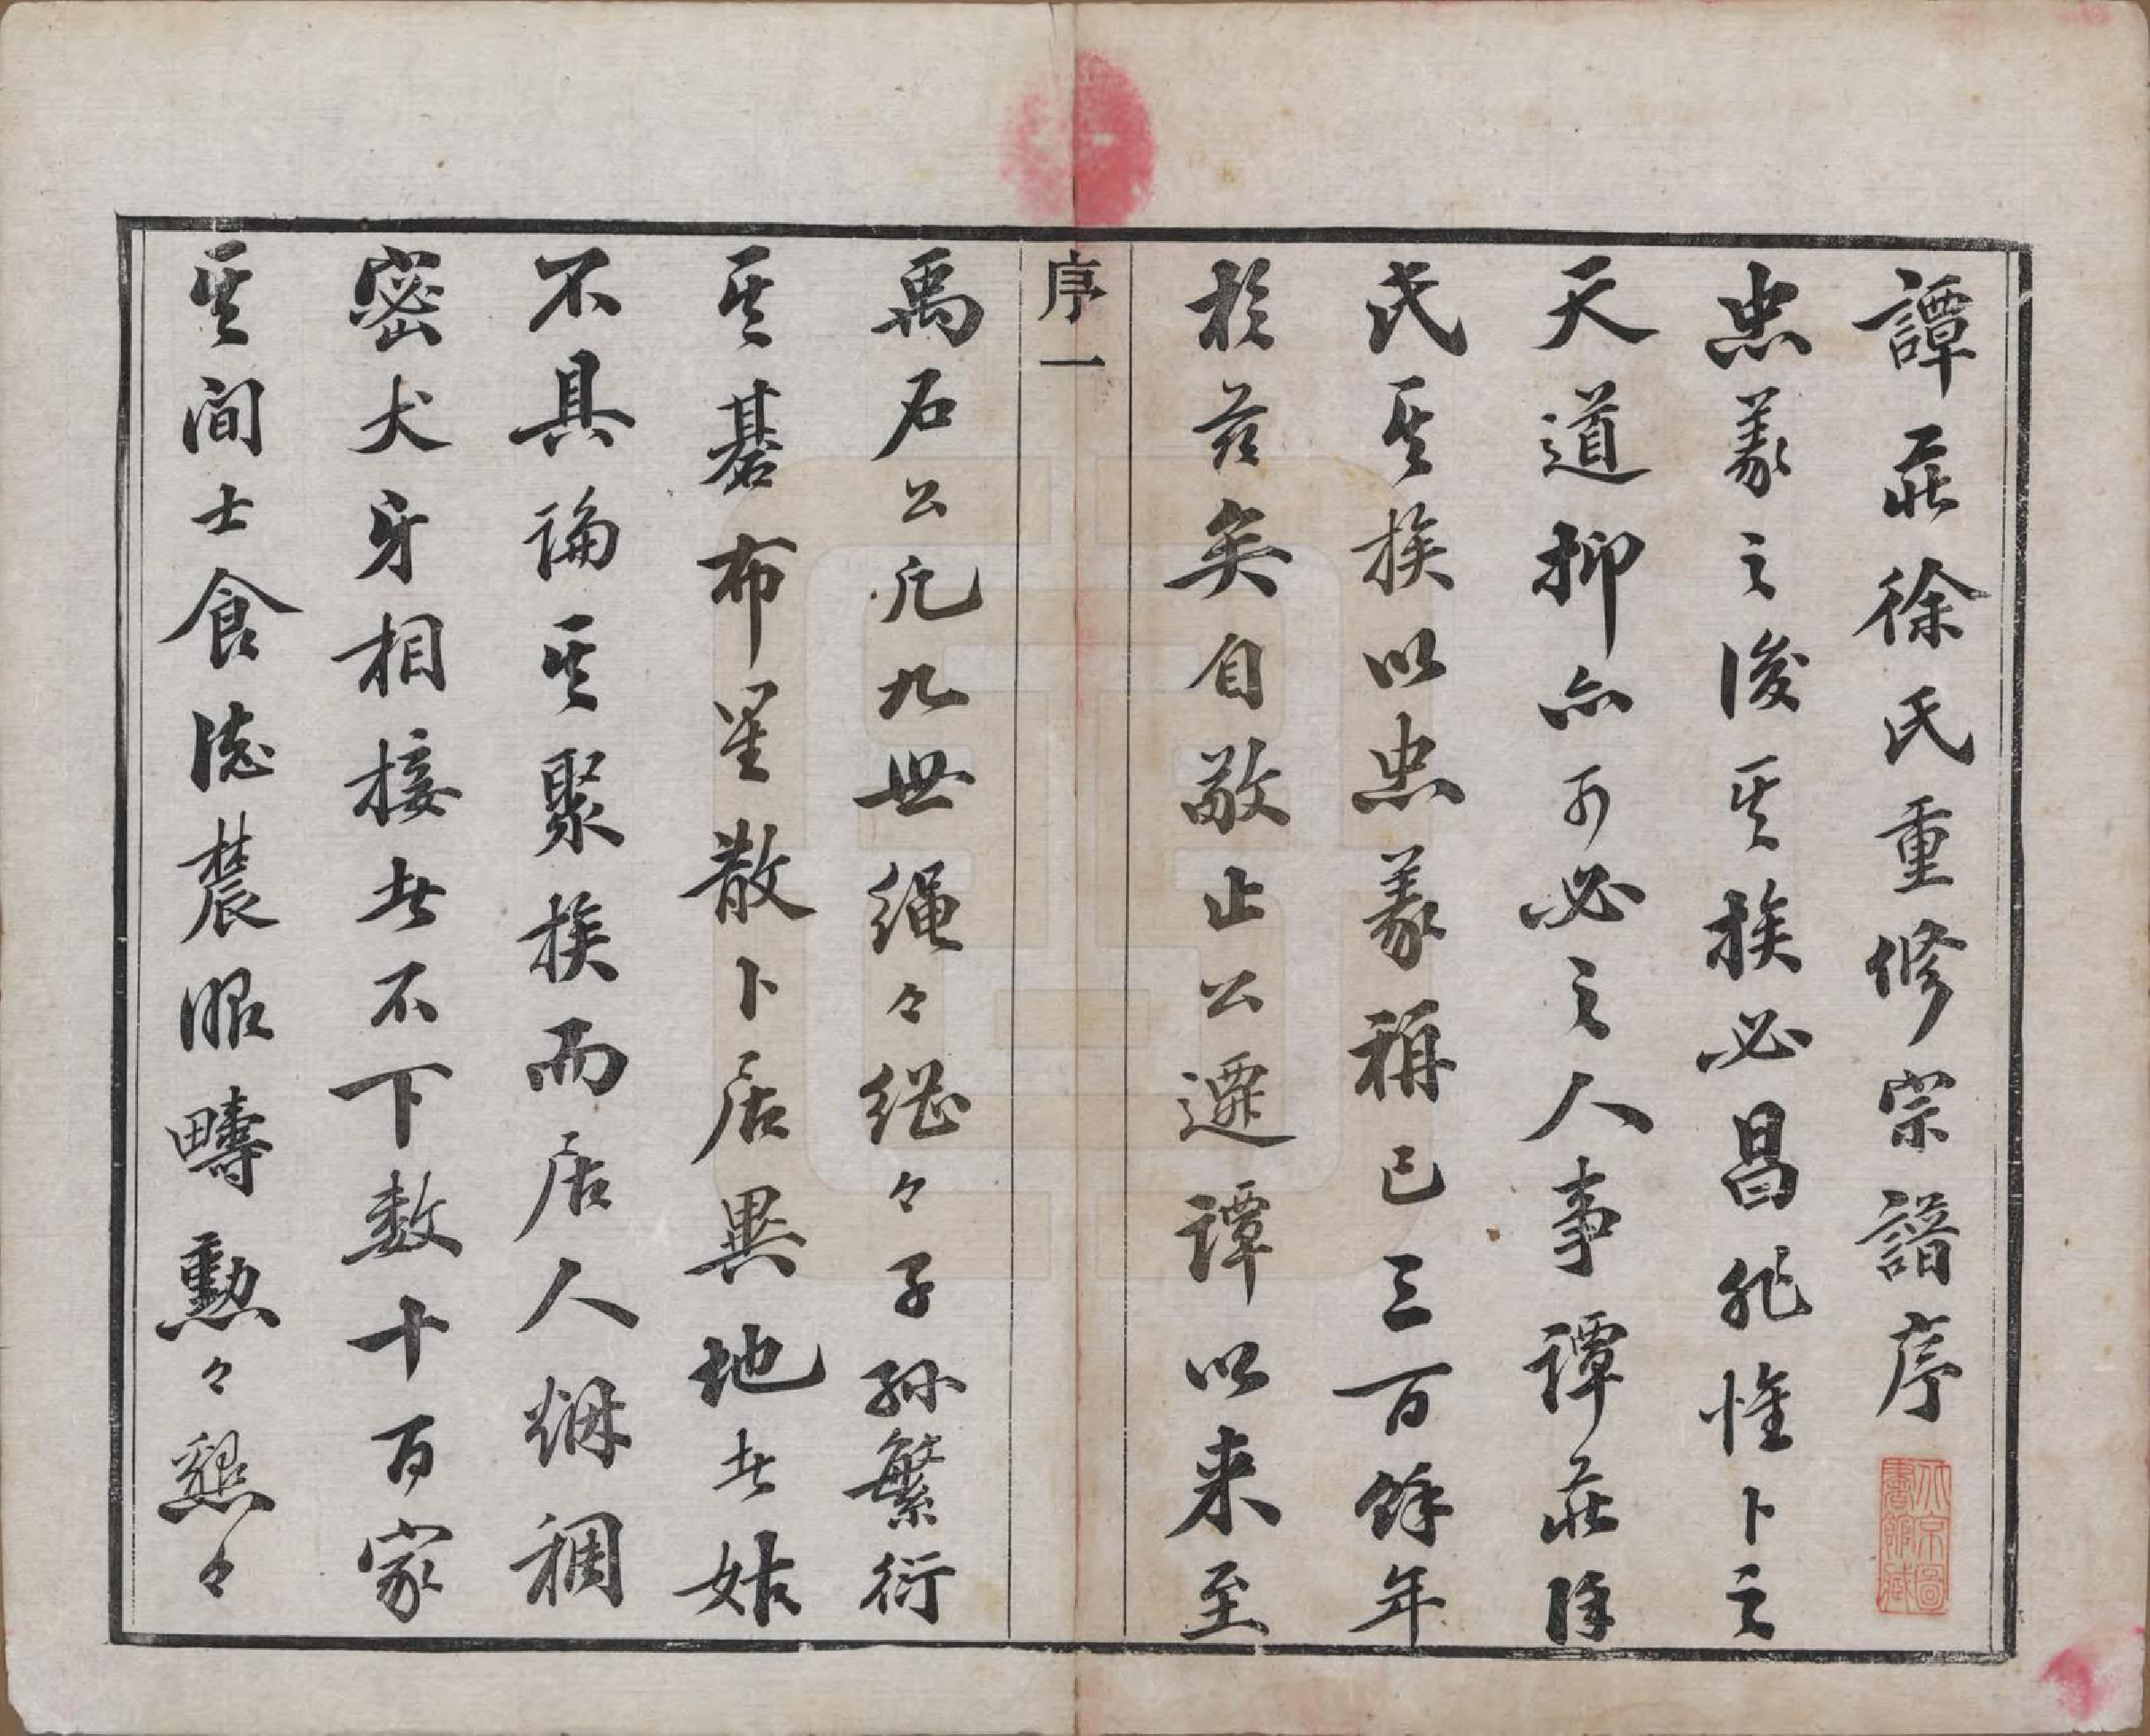 譚莊徐氏重修宗譜序
忠義之後其族必昌非惟卜之
天道抑亦可必之人事譚莊徐
氏其族以忠義稱已三百餘年
於茲矣自敬止公遷譚以來至
序一
禹石公凡九世繩々繼々子孫繁衍
其碁布星散卜居異地者姑
不具論其聚族而居人烟稠
密犬牙相接者不下数十百家
其间士食德農服疇勲々懇々
北京圖書館藏